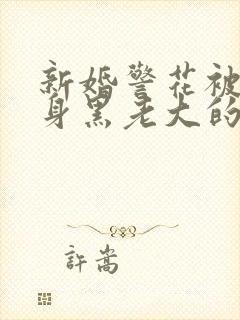 新婚警花被
身黑老大的
許嵩